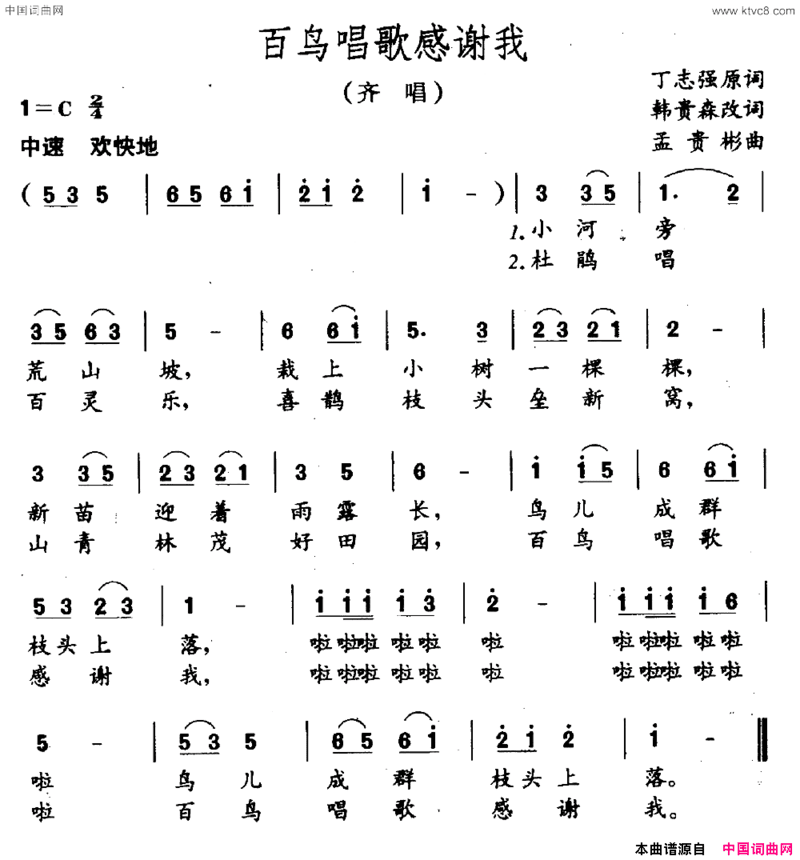 中国词曲网
www.ktvc8.com
百鸟唱歌感谢我
（齐 唱）
丁志强原词
韩贵森改词
孟贵彬曲
1=C 2/4
中速 欢快地
( 5 3 5 | 6 5 6 i | 2 i 2 | i - ) | 3 3 5 | 1. 2 |
1.小 河 旁
2.杜 鹃 唱
3 5 6 3 | 5 - | 6 6 i | 5. 3 | 2 3 2 1 | 2 - |
荒 山 坡， 栽 上 小 树 一 棵 棵，
百 灵 乐， 喜 鹊 枝 头 垒 新 窝，
3 3 5 | 2 3 2 1 | 3 5 | 6 - | i i 5 | 6 6 i |
新 苗 迎 着 雨 露 长， 鸟 儿 成 群
山 青 林 茂 好 田 园， 百 鸟 唱 歌
5 3 2 3 | 1 - | i i i i 3 | 2 - | i i i i 6 |
枝 头 上 落， 啦 啦啦 啦 啦 啦 啦 啦啦 啦 啦
感 谢 我， 啦 啦啦 啦 啦 啦 啦 啦啦 啦 啦
5 - | 5 3 5 | 6 5 6 i | 2 i 2 | i - ‖
啦 鸟 儿 成 群 枝 头 上 落。
啦 百 鸟 唱 歌 感 谢 我。
本曲谱源自 中国词曲网